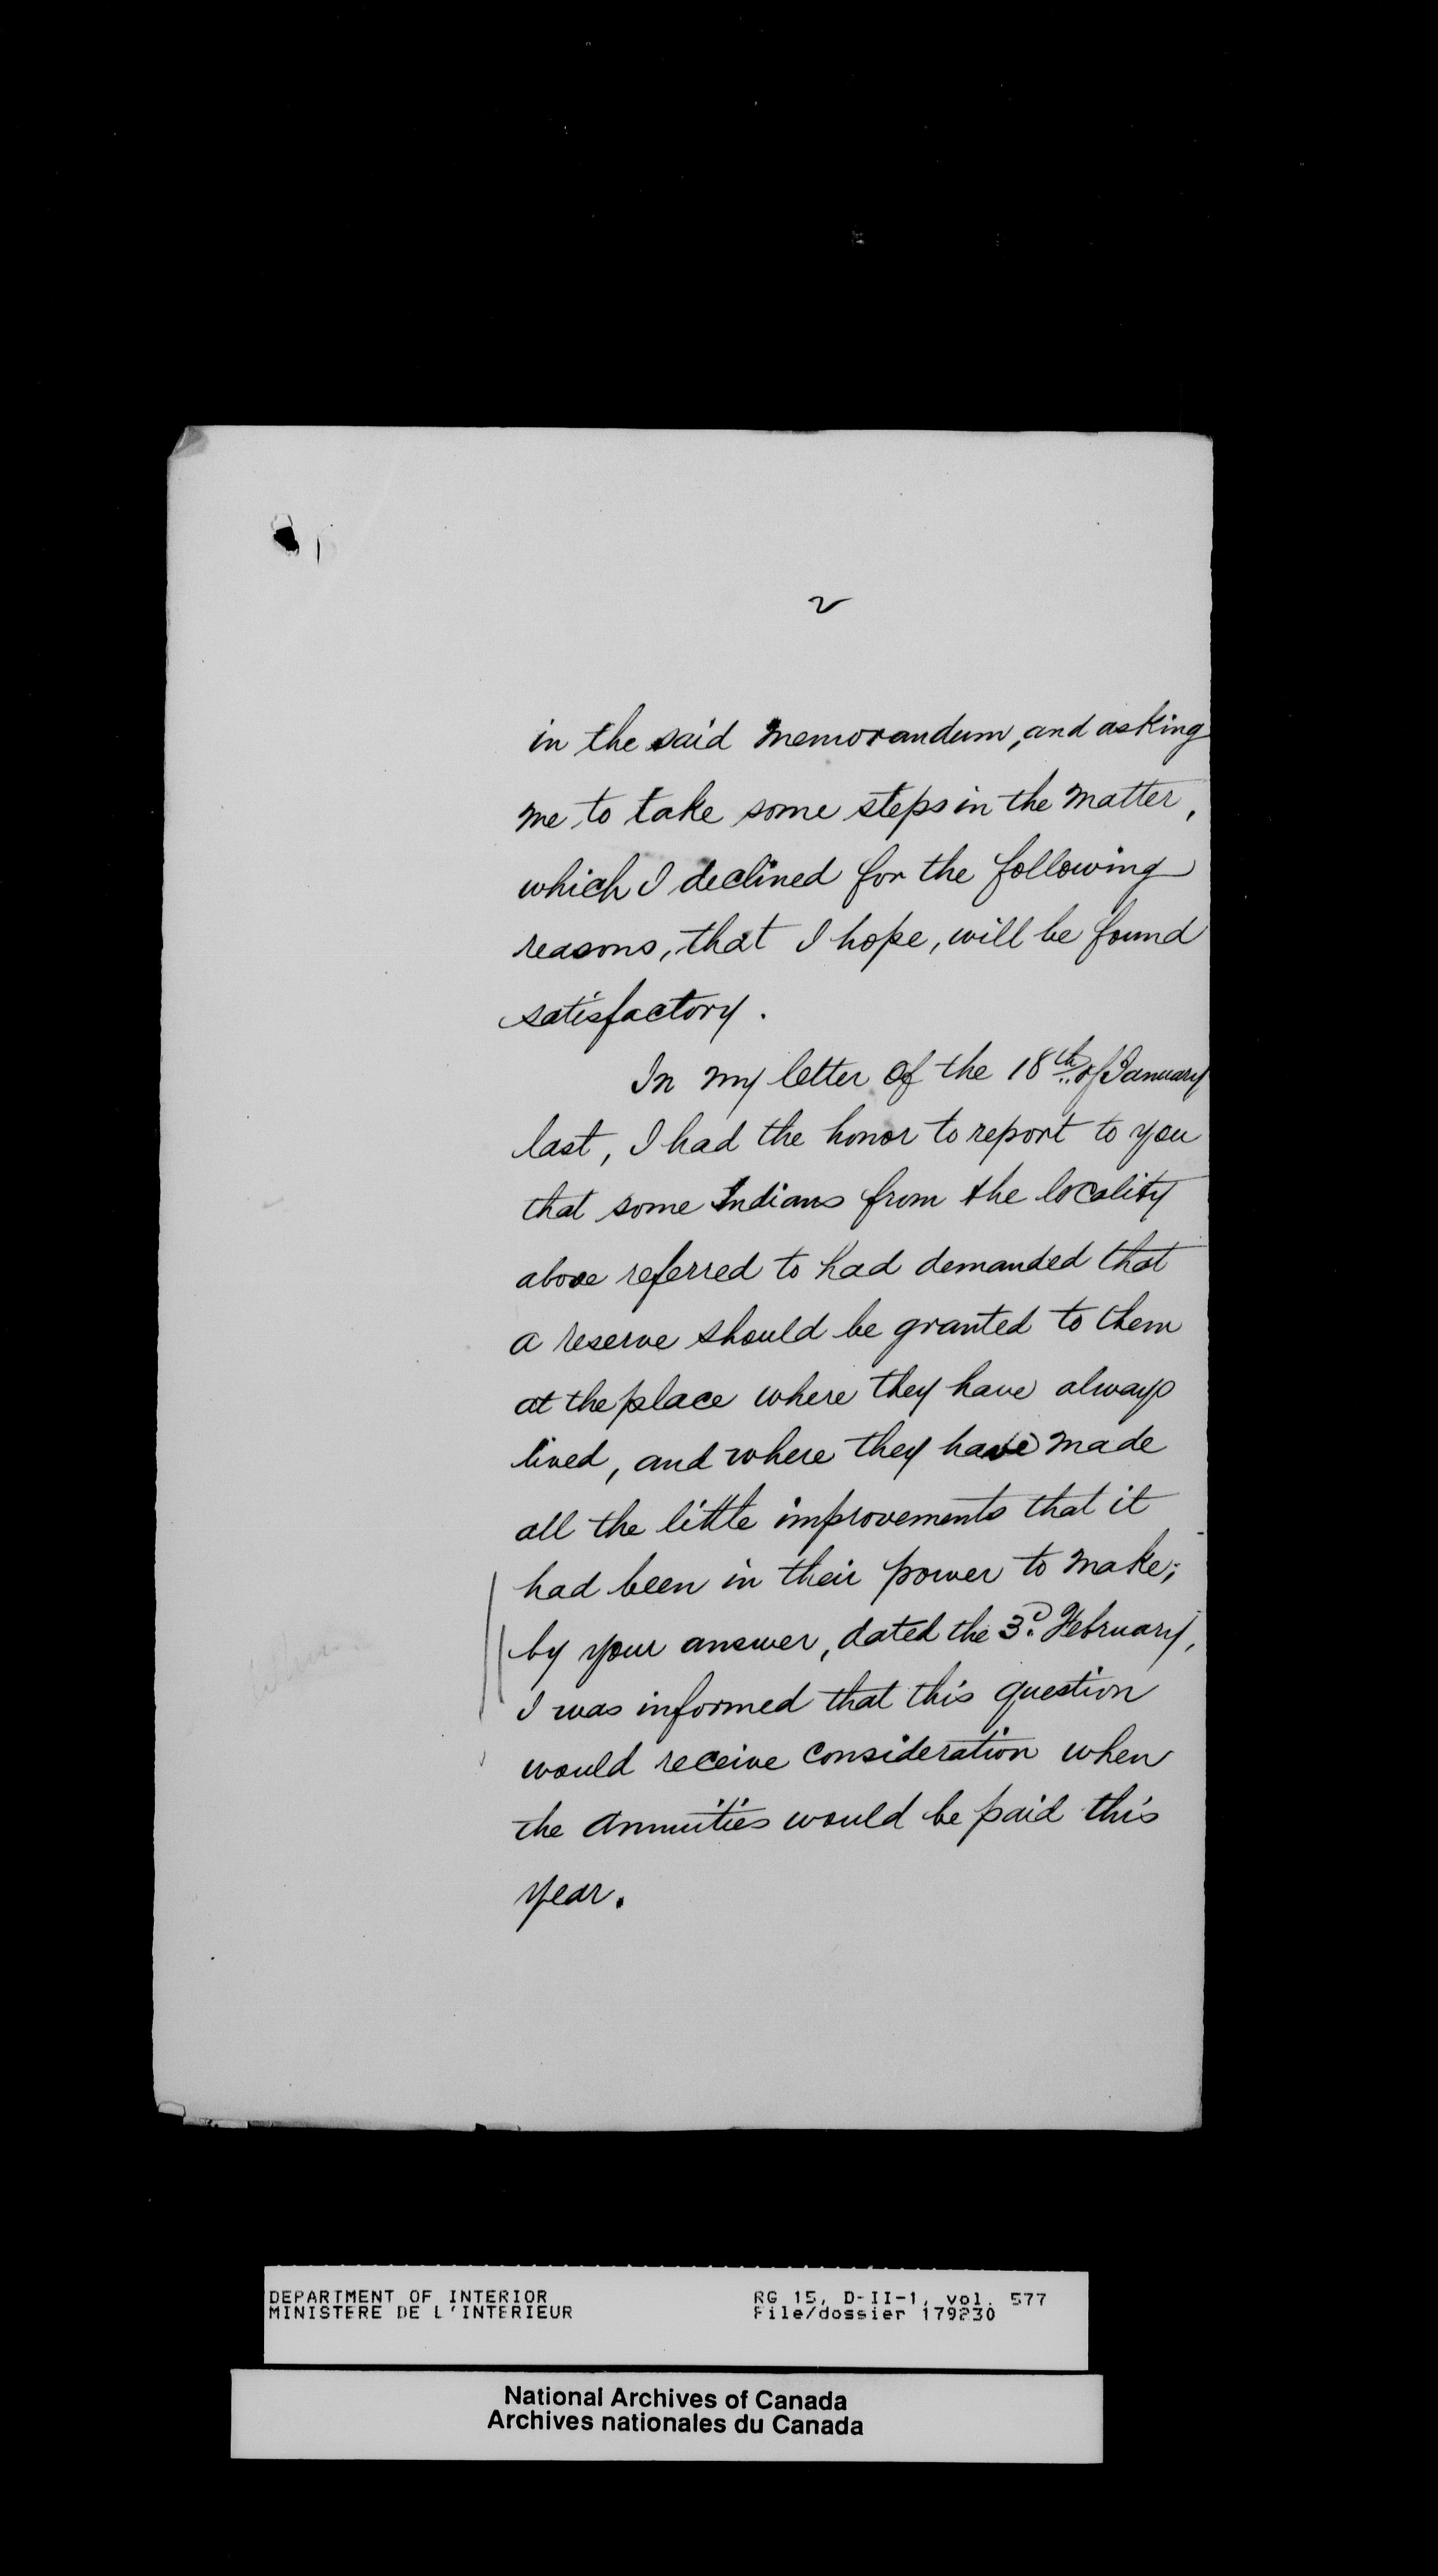 2
in the said memorandum, and asking
me to take some steps in the matter,
which I declined for the following
reasons, that I hope, will be found
satisfactory.
In my letter of the 18th of January
last, I had the honor to report to you
that some Indians from the locality
above referred to had demanded that
a reserve should be granted to them
at the place where they have always
lived, and where they have made
all the little improvements that it
had been in their power to make;
by your answer, dated the 3d. February,
I was informed that this question
would receive consideration when
the annuities would be paid this
year.
DEPARTMENT OF INTERIOR RG 15, D-II-1, vol. 577
MINISTERE DE L'INTERIEUR File/dossier 179230
National Archives of Canada
Archives nationales du Canada